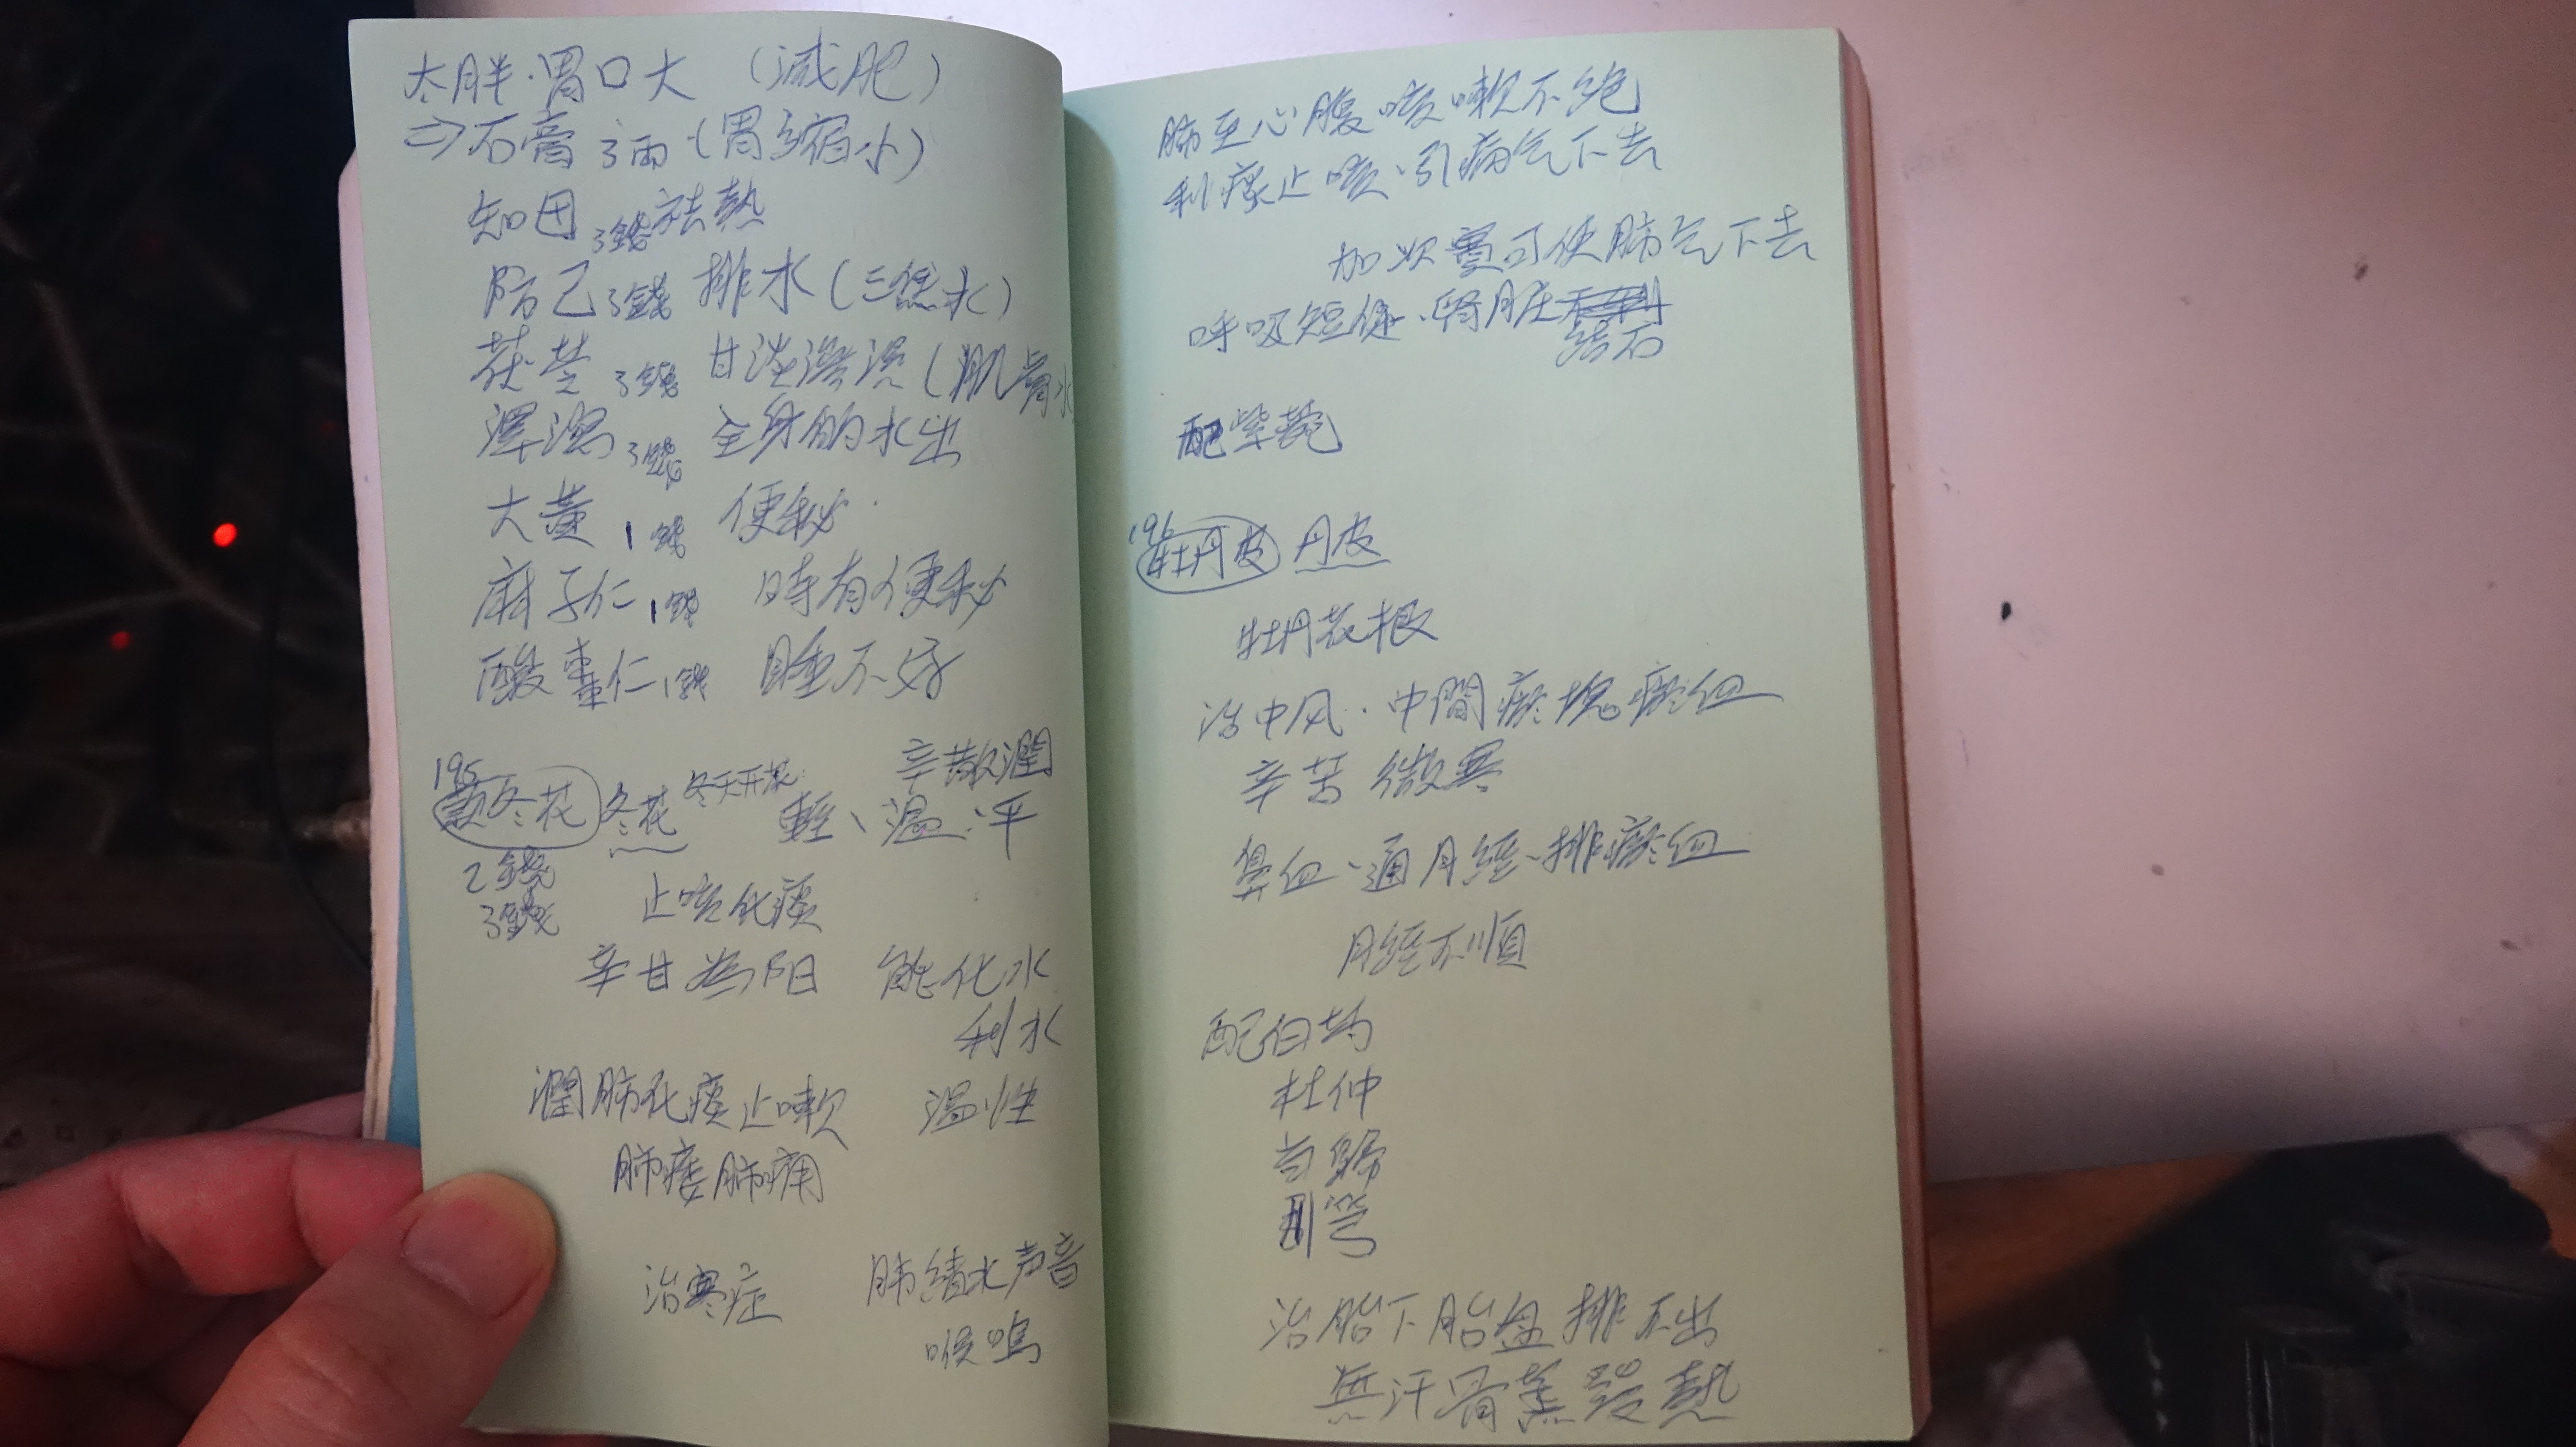 太胖.胃口大 (減肥)
⇒石膏 3兩 (胃縮小)
知母 3錢 祛熱
防己 3錢 排水(三焦水)
茯苓 3錢 甘淡滲濕(肌膚水
澤瀉 3錢 全身的水出
大黃 1錢 便秘.
麻子仁 1錢 時有便秘
酸棗仁 1錢 睡不好
辛散潤
195 款冬花 冬花 冬天开花 輕、溫、平
2錢
3錢 止咳化痰
辛甘為阳 能化水
利水
潤肺化痰止嗽 溫性
肺痿肺癰
治寒症 肺積水声音
喉鳴
肺至心腹咳嗽不絕
利痰止咳、引病气下去
加 可使肺气下去
呼吸短促、腎臟
結石
配紫菀
196 牡丹皮 丹皮
牡丹花根
治中风.中間瘀塊瘀血
辛苦微寒
鼻血、通月經、排瘀血
月經不順
配白芍
杜仲
當歸
川芎
治胎下胎盘排不出
無汗骨蒸發熱